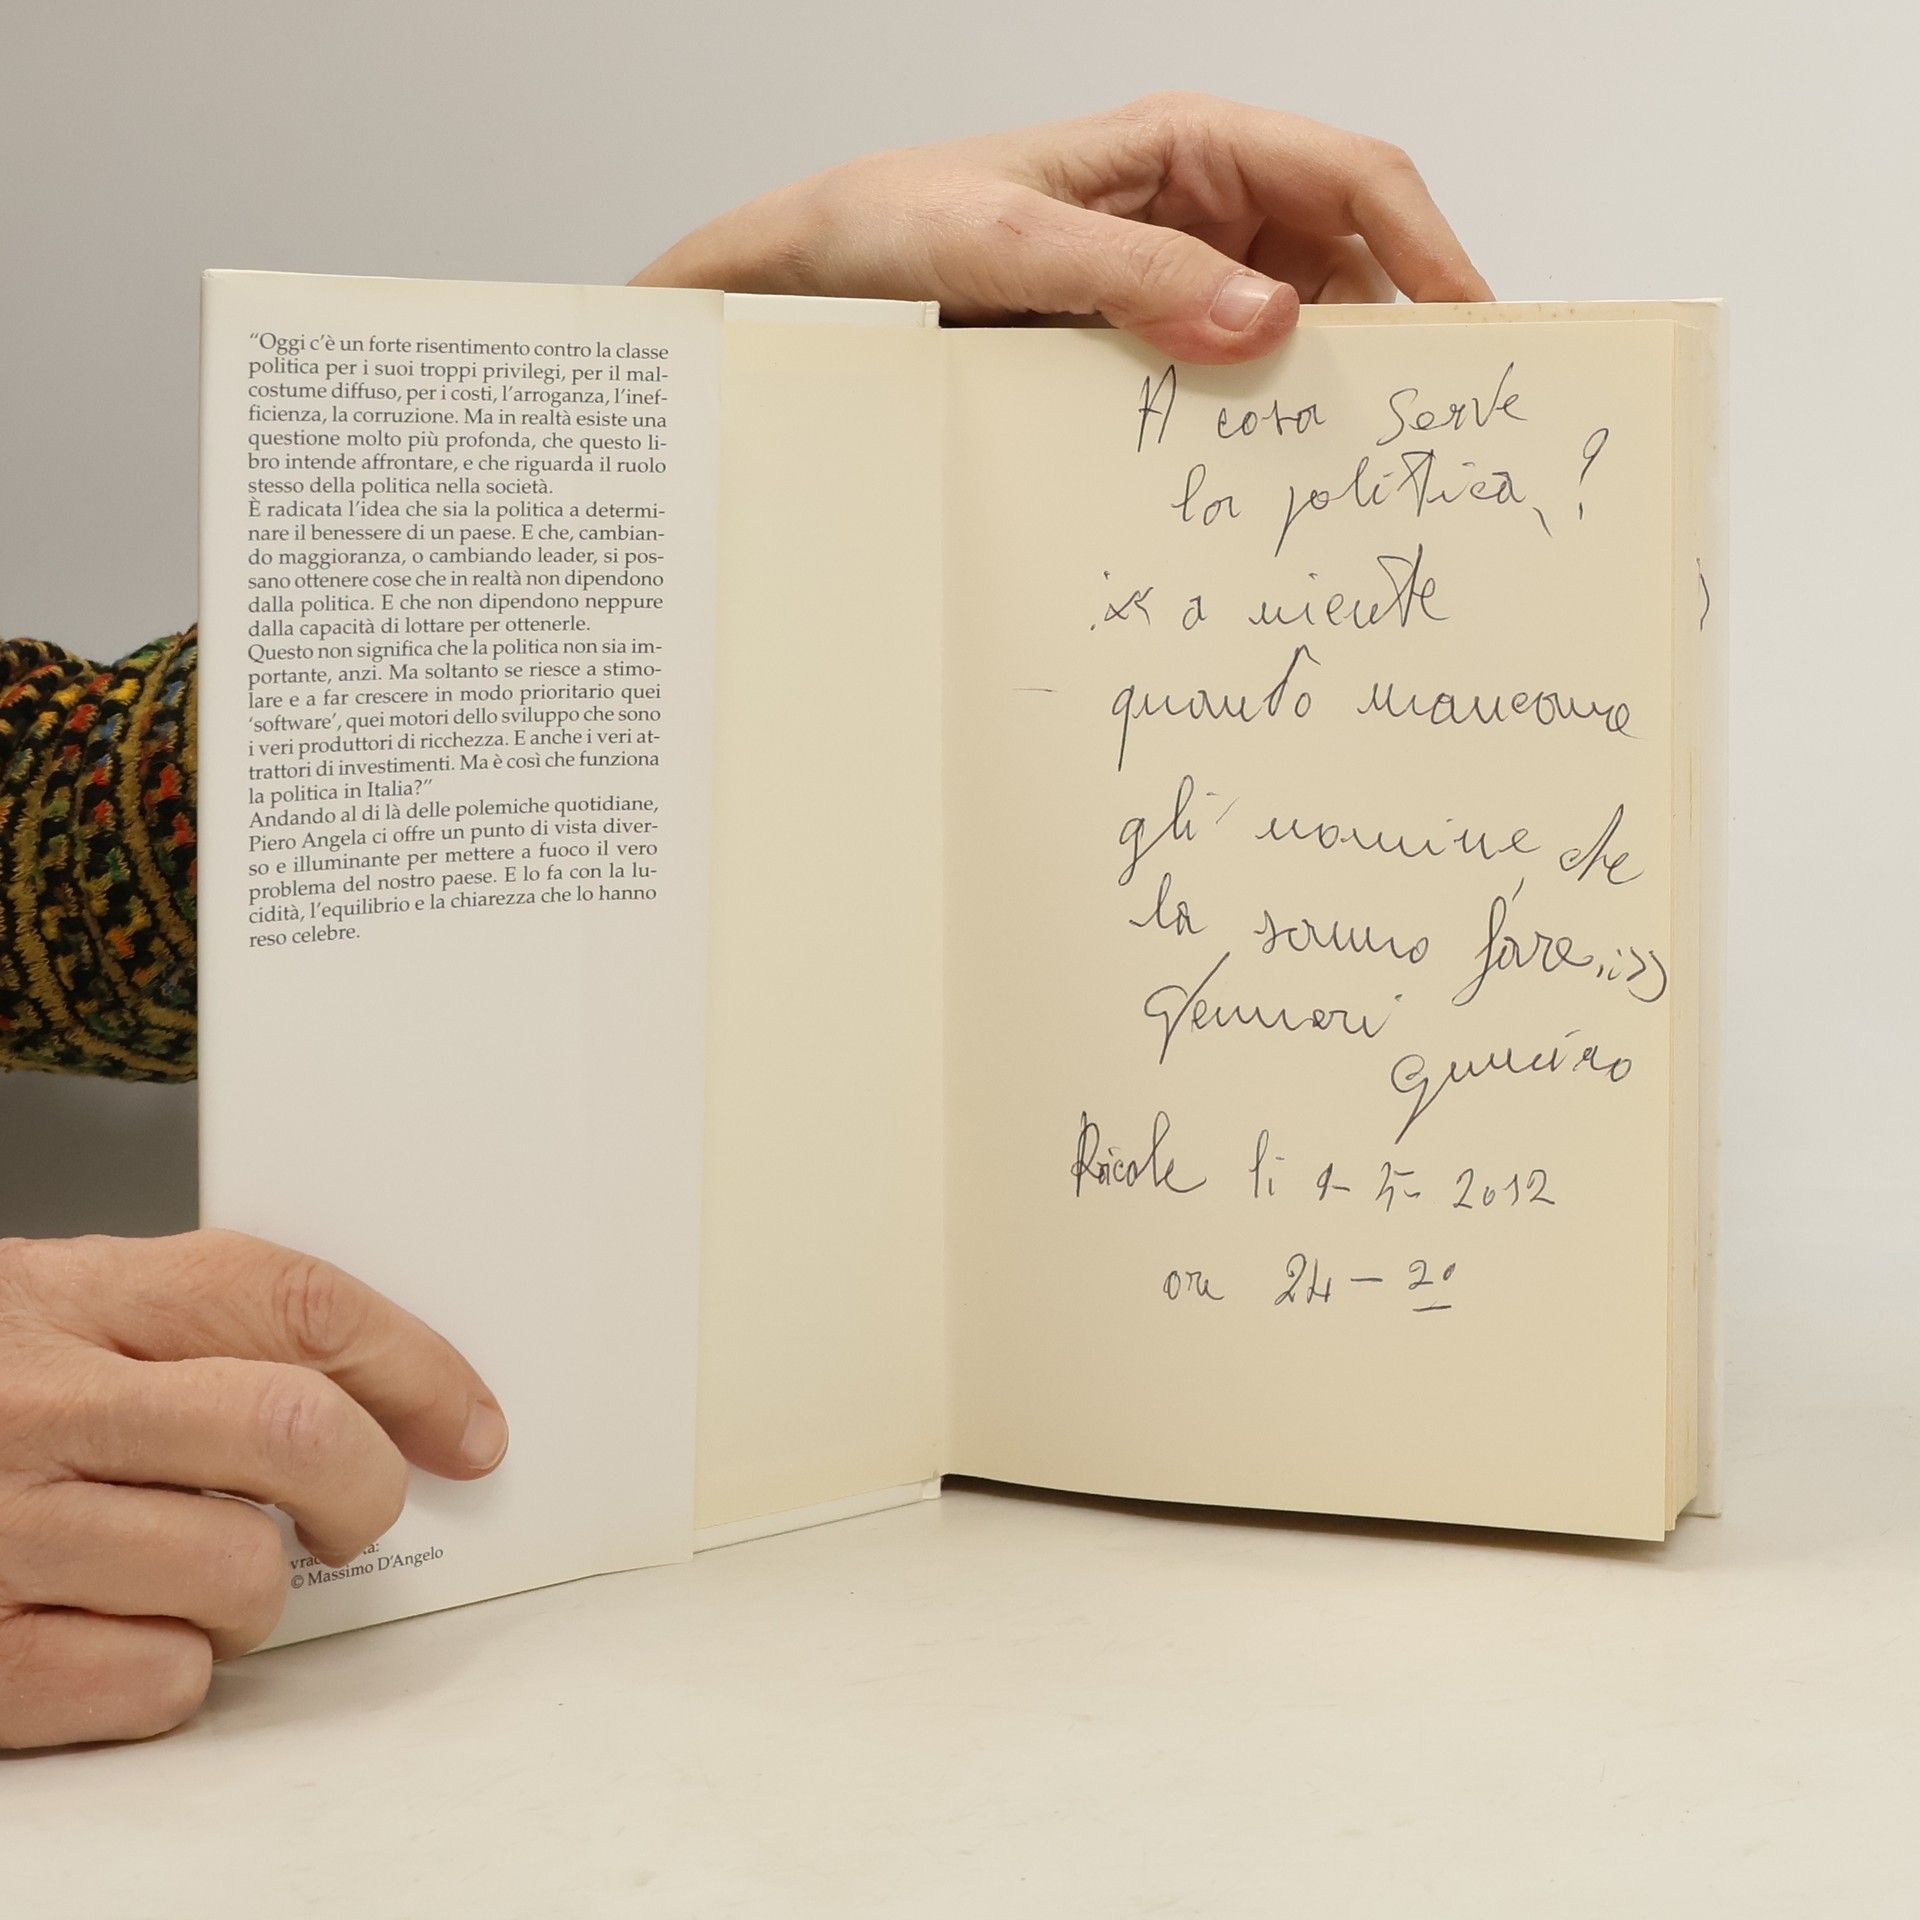 “Oggi c’è un forte risentimento contro la classe
politica per i suoi troppi privilegi, per il mal-
costume diffuso, per i costi, l’arroganza, l’inef-
ficienza, la corruzione. Ma in realtà esiste una
questione molto più profonda, che questo li-
bro intende affrontare, e che riguarda il ruolo
stesso della politica nella società.
È radicata l’idea che sia la politica a determi-
nare il benessere di un paese. E che, cambian-
do maggioranza, o cambiando leader, si pos-
sano ottenere cose che in realtà non dipendono
dalla politica. E che non dipendono neppure
dalla capacità di lottare per ottenerle.
Questo non significa che la politica non sia im-
portante, anzi. Ma soltanto se riesce a stimo-
lare e a far crescere in modo prioritario quei
‘software’, quei motori dello sviluppo che sono
i veri produttori di ricchezza. E anche i veri at-
trattori di investimenti. Ma è così che funziona
la politica in Italia?”
Andando al di là delle polemiche quotidiane,
Piero Angela ci offre un punto di vista diver-
so e illuminante per mettere a fuoco il vero
problema del nostro paese. E lo fa con la lu-
cidità, l’equilibrio e la chiarezza che lo hanno
reso celebre.
© Massimo D’Angelo
A cosa serve
la politica?
a niente
quando mancano
gli uomini che
la sanno fare
Gennari
li 2012
ore 24 – 20